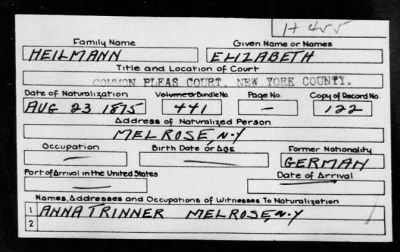 H 455
Family Name Given Name or Names
HEILMANN ELIZABETH
Title and Location of Court
COMMON PLEAS COURT, NEW YORK COUNTY.
Date of Naturalization Volume or Bundle No. Page No Copy of Record No.
AUG 23 1875 441 - 122
Address of Naturalized Person
MELROSE N-Y
Occupation Birth Date or Age Former Nationality
— — GERMAN
Port of Arrival in the United States Date of Arrival
— —
Names, Addresses and Occupations of Witnesses To Naturalization
1 ANNA TRINNER MELROSE N-Y
2